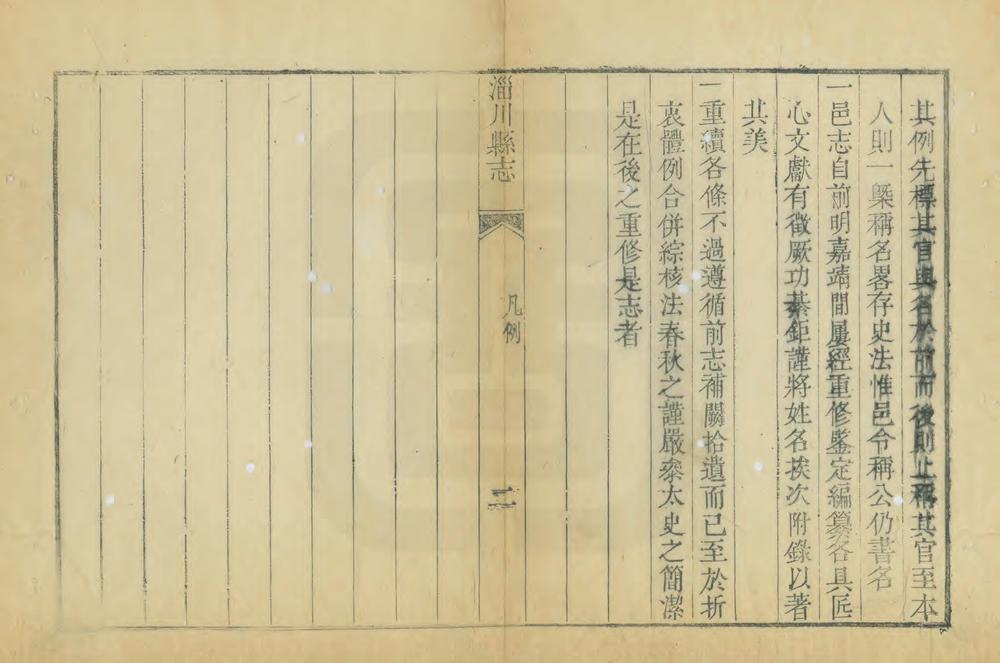 其例先標其官與名於前而後則止稱其官至本
人則一槩稱名畧存史法惟邑令稱公仍書名
一邑志自前明嘉靖間屢經重修鑒定編纂各具匠
心文獻有徵厥功綦鉅謹將姓名挨次附錄以著
其美
一重續各條不過遵循前志補闕拾遺而已至於折
衷體例合併綜核法春秋之謹嚴叅太史之簡潔
是在後之重修是志者
淄川縣志
凡例
二